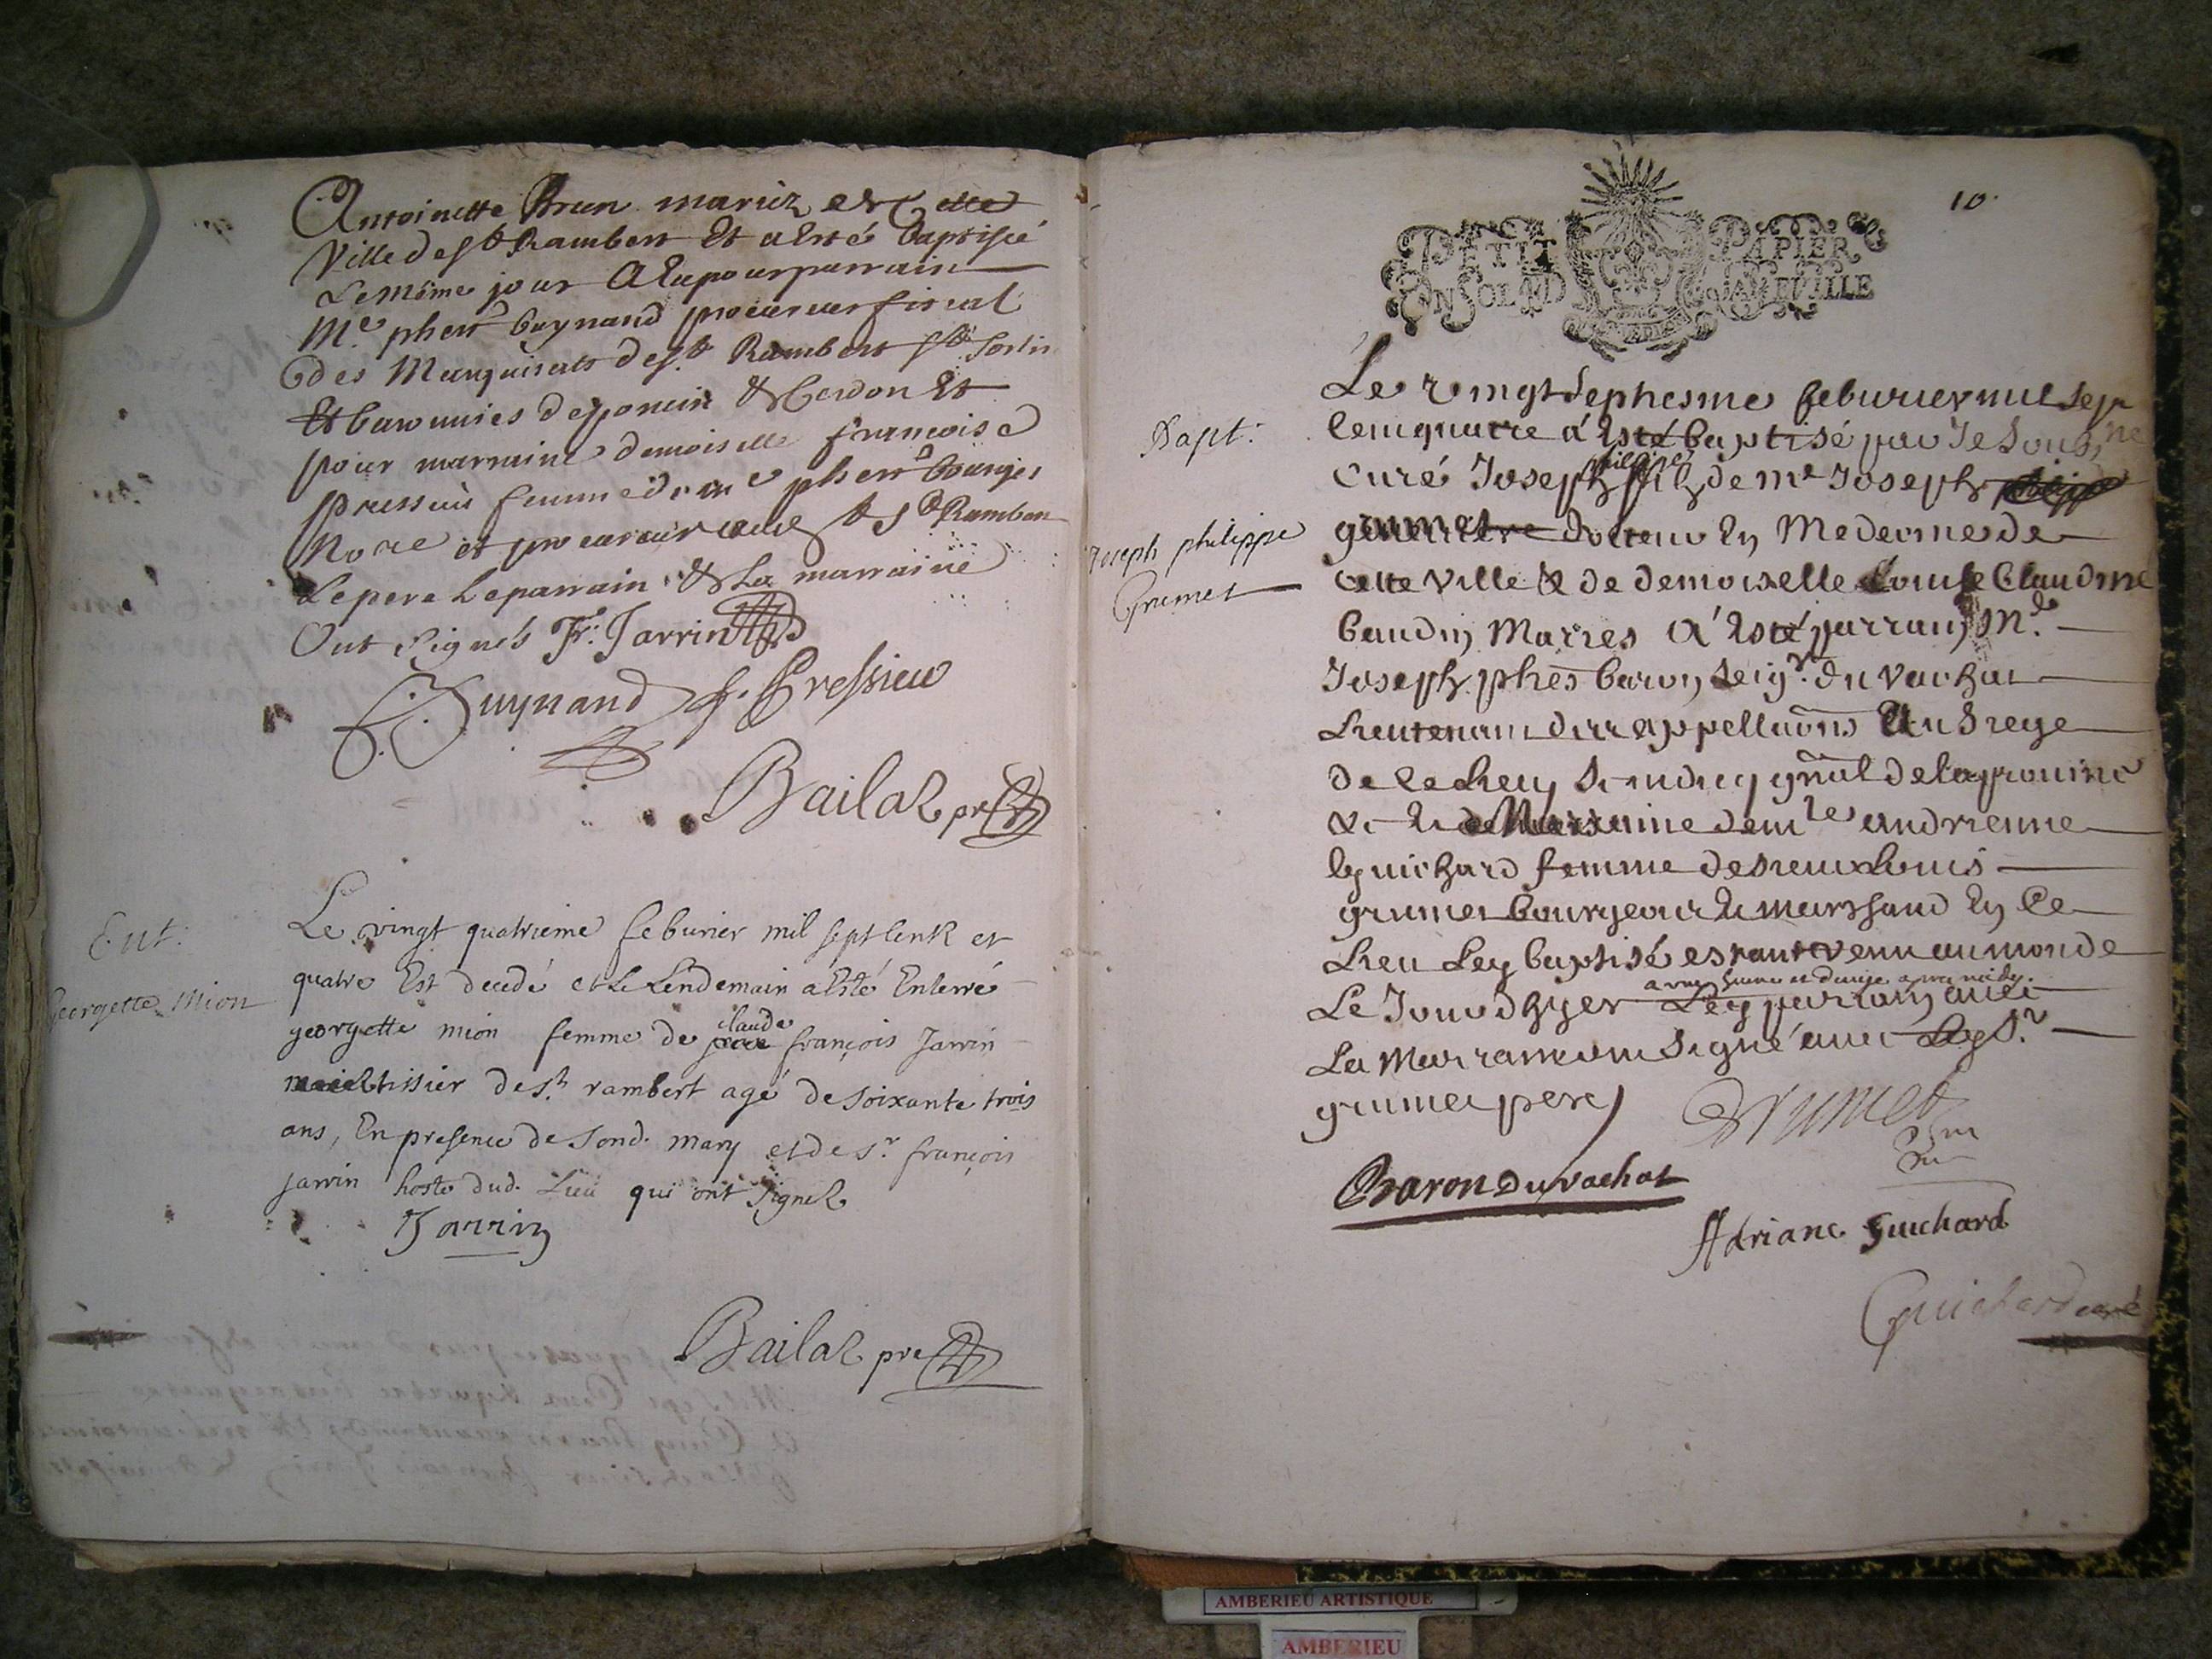 Antoinette Brun mariez de Cette
Ville de st Rambert Et a esté baptisé
Le même jour A eu pour parrain
Me phert Guynand procureur fiscal
des Marquisats de st Rambert st Sorlin
Et baronnies de poncin & Cerdon Et
pour marraine demoiselle francoise
pressieu femme de me phert
Nore et procureur st Rambert
Le pere Le parrain & La marraine
Ont signés Fr: Jarrin
Guynand f. Pressieu
Bailat pre
Ent:
Georgette Mion
Le vingt quatrieme feburier mil sept cent et
quatre Est decedé et Le Lendemain a Esté Enterré
georgette mion femme de claude françois Jarrin
tissier de st rambert agé de soixante trois
ans, En presence de Sond. mary et de sr. françois
jarrin hoste dud. Lieu qui ont signez
Jarrin
Bailat pre
10.
PETIT PAPIER
UN SOL LA FEUILLE
Bapt:
Joseph philippe
Grumet
Le vingt sephesme feburier mil sept
cent quatre a esté baptisé par Je Soubsne
Curé Joseph philippe filz de me Joseph
grumet docteur En Medecine de
cette Ville & de demoiselle Louise Claudine
baudin Maries a esté parrain Mr
Joseph phes baron seigr. du Vachat
Lieutenant des appellaons Au siege
de ce Lieu Sindicq gnal de la province
& Marraine demle andrienne
guichard femme de sieur Louis
grumet bourgeois & marchand En Ce
Lieu Ley baptisé estant venu au monde
a apres midy.
Le Jour d'hyer Ley parrain avec
La Marraine ont signé avec Ley Sr
grumet pere
Grumet
Baron Du vachat
Adriane guichard
Guichard curé
AMBERIEU ARTISTIQUE
AMBERIEU